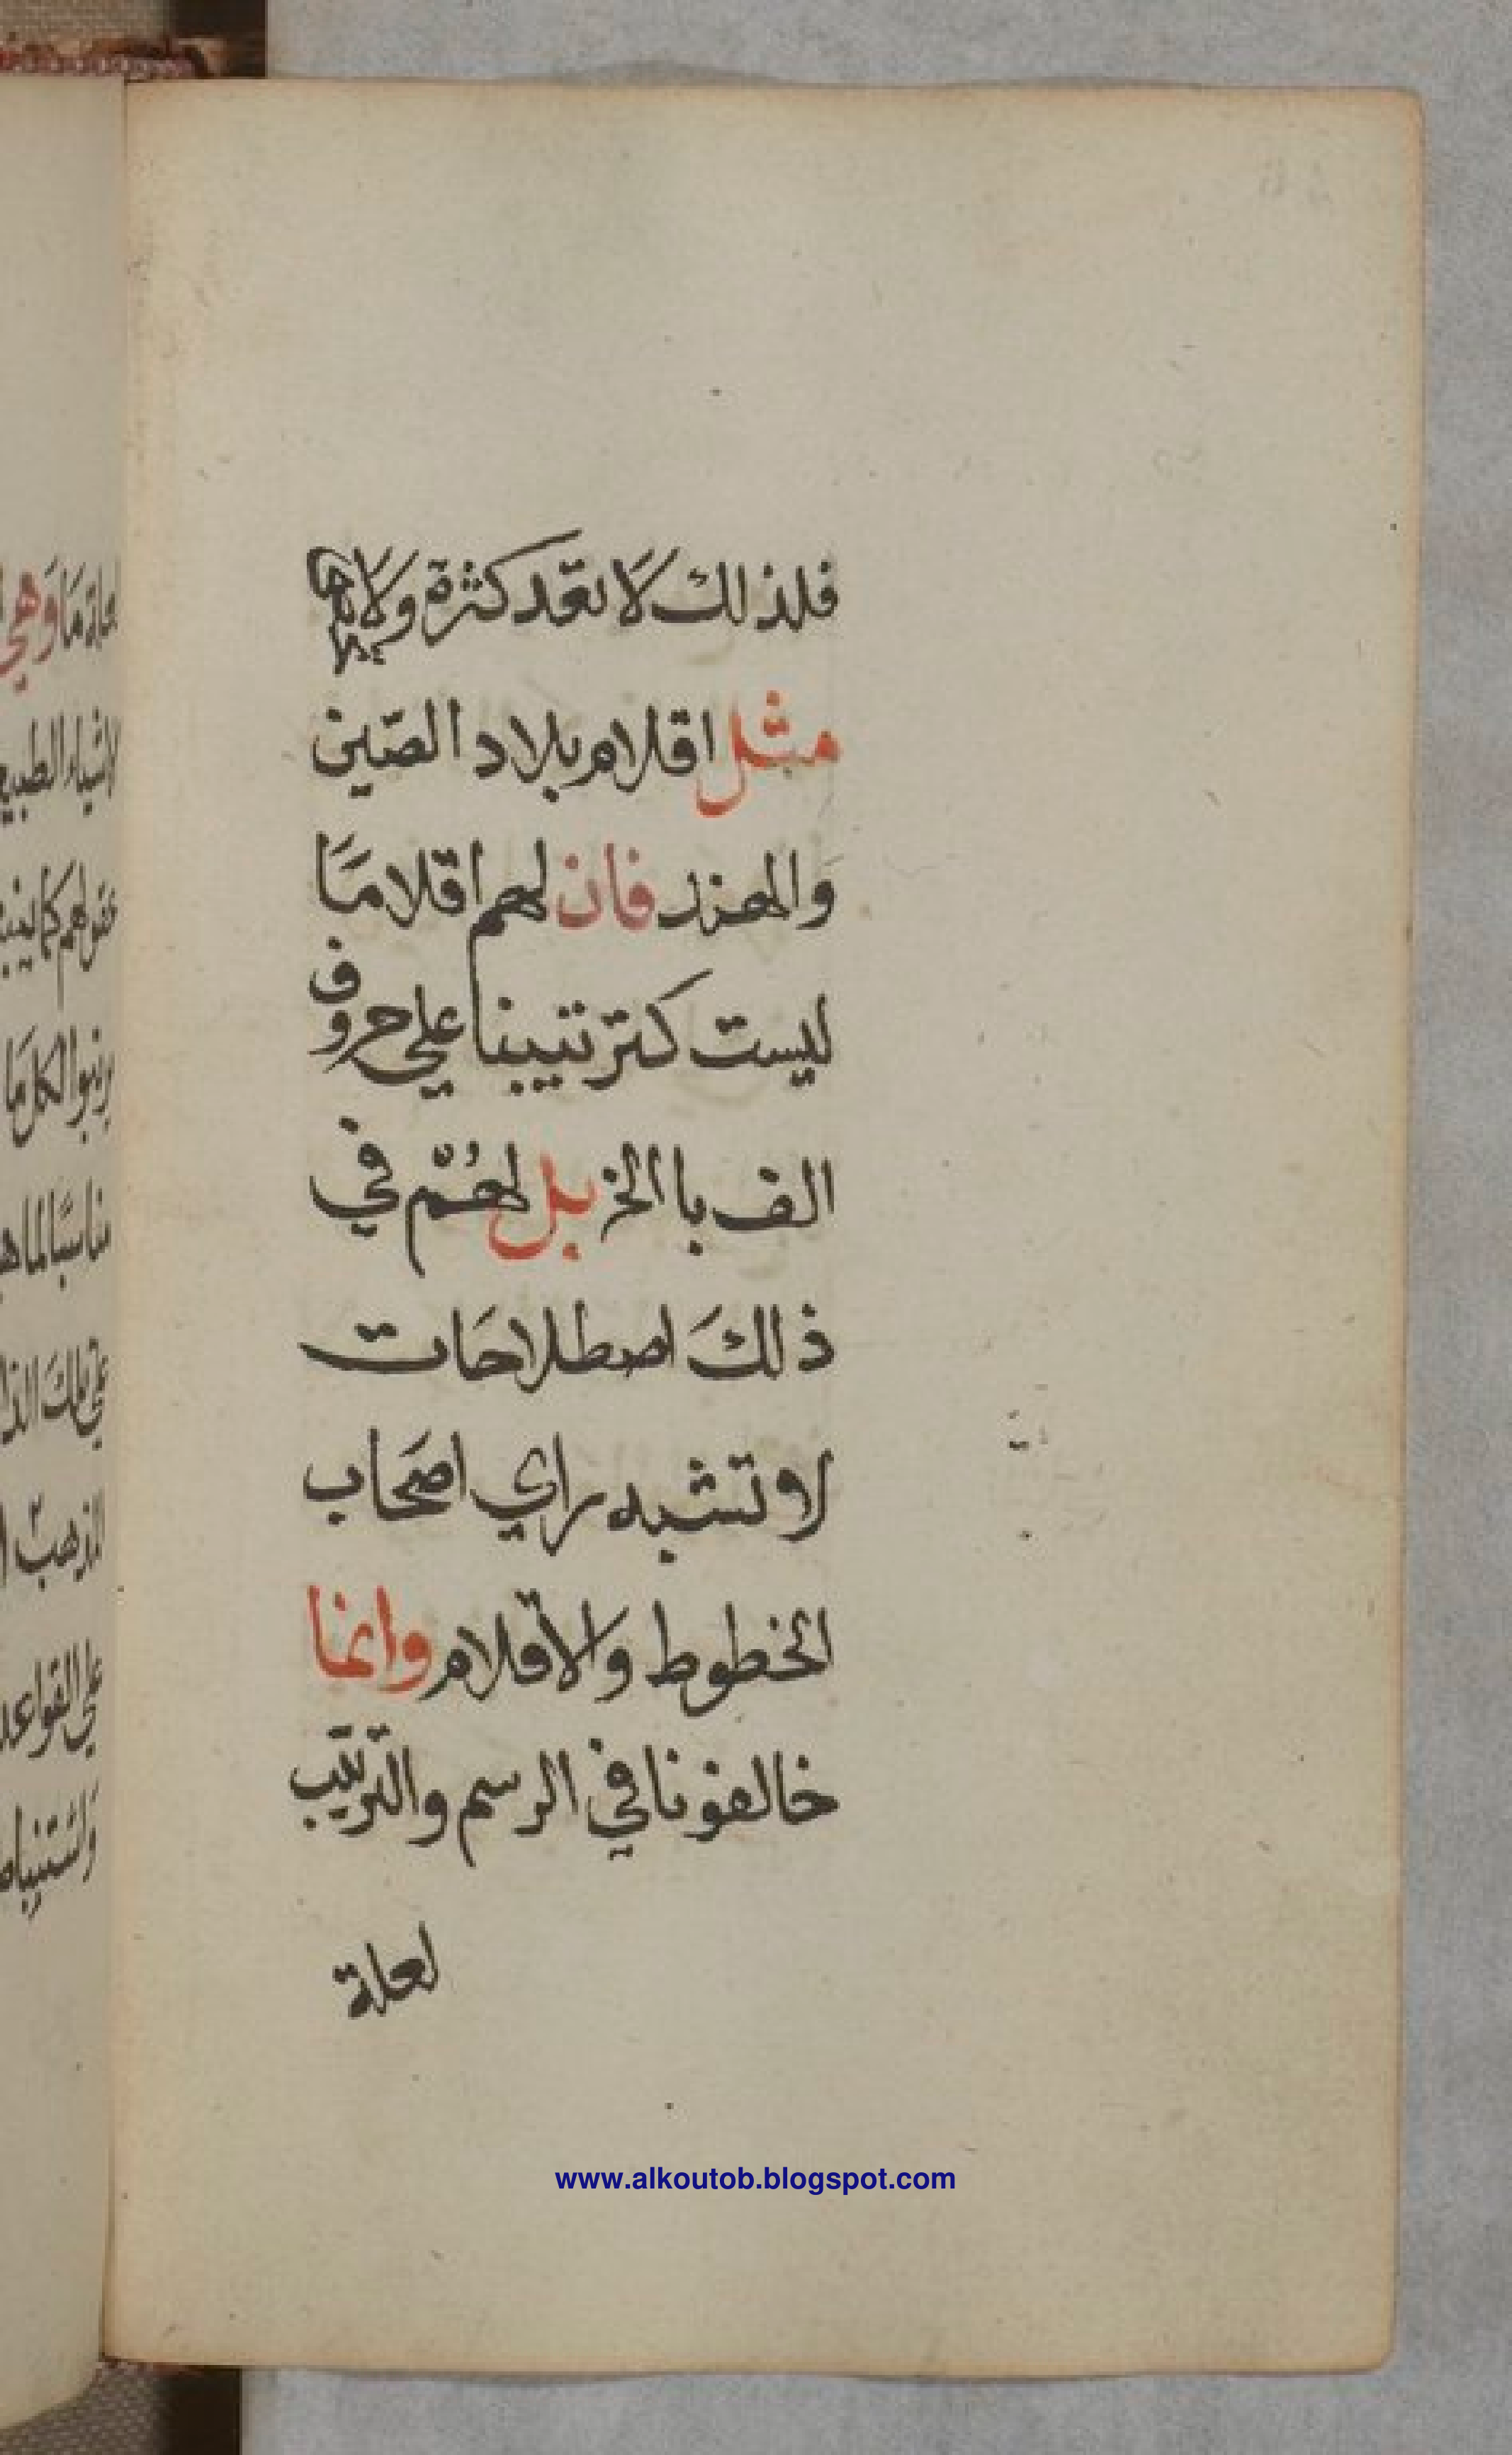 فلذلك لا تعد كثرة ولا
مثل اقلام بلاد الصّين
والهند فان لهم اقلامًا
ليست كترتيبنا علي حروف
الف با الخ بل لهُم في
ذلكَ اصطلاحَات
لا تشبه راي اصحَاب
الخطوط والاقلام وانما
خالفونا في الرسم والترتيب
لعلة
www.alkoutob.blogspot.com